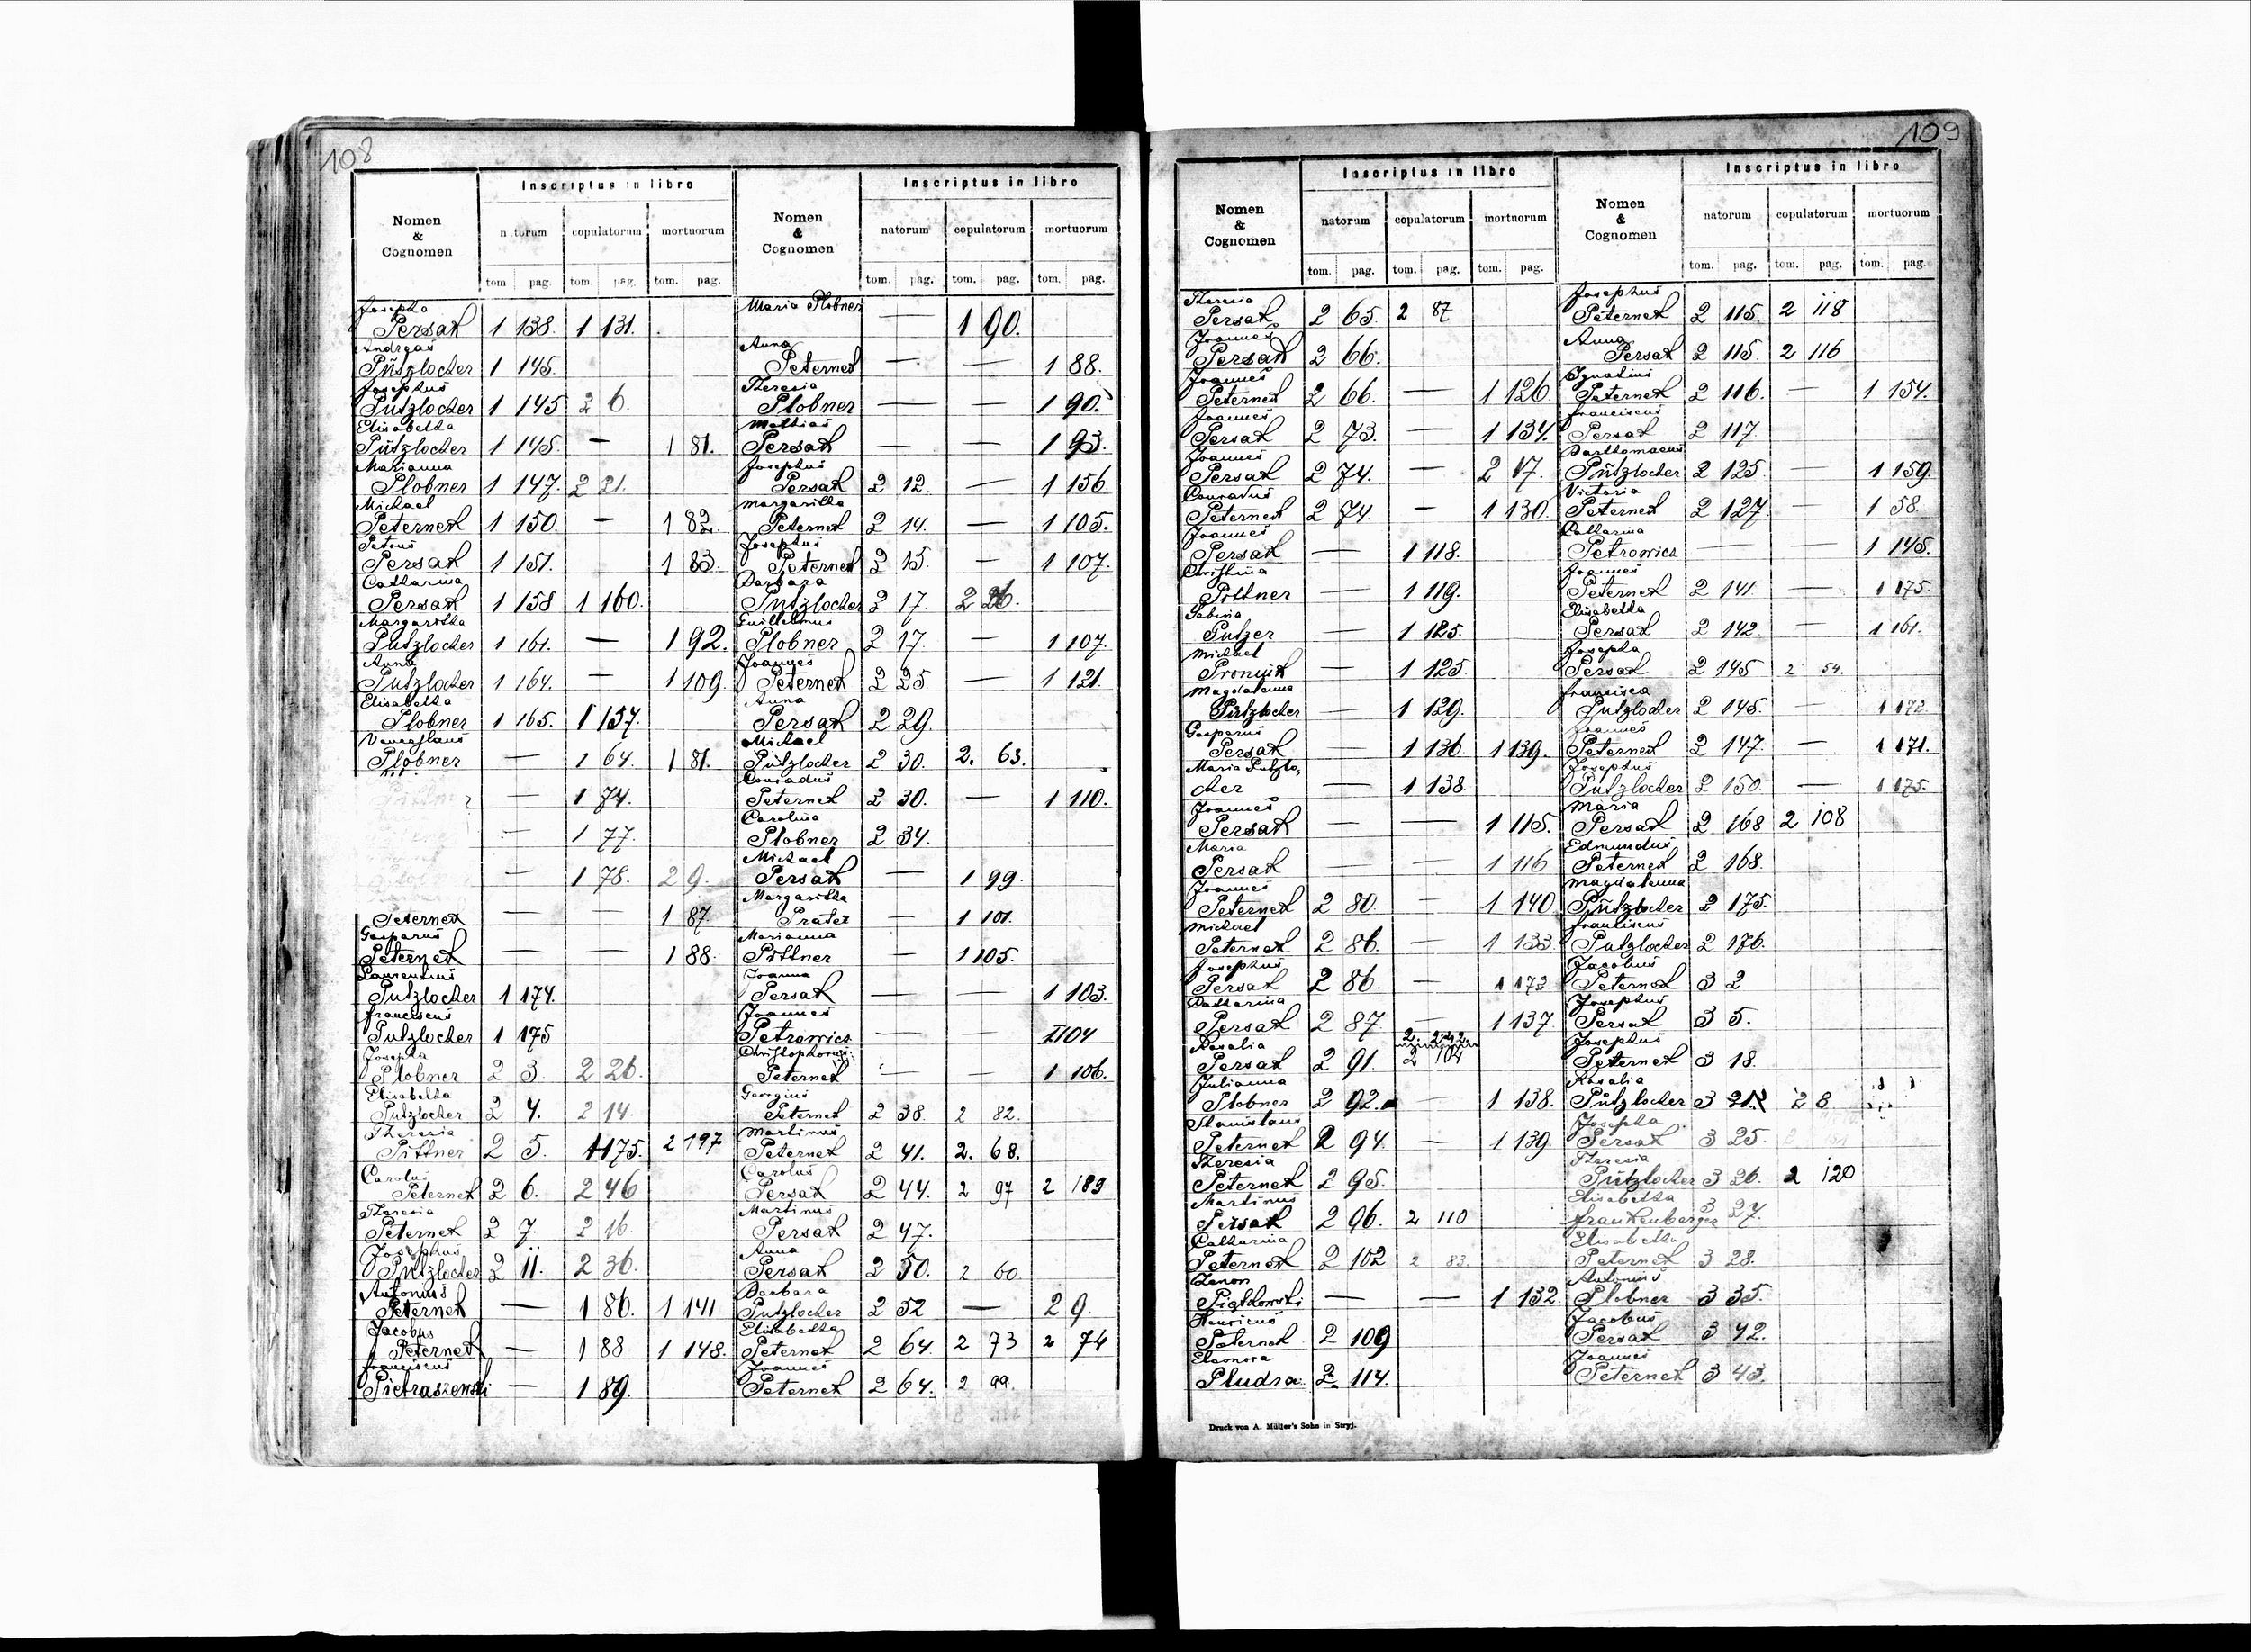 108
Inscriptus in libro Inscriptus in libro
Nomen & Cognomen natorum copulatorum mortuorum Nomen & Cognomen natorum copulatorum mortuorum
tom. pag. tom. pag. tom. pag. tom. pag. tom. pag. tom. pag.
Josepha
Persak 1 138. 1 131.
Andreas
Pützlocher 1 145.
Josephus
Putzlocher 1 145 2 6.
Elisabetha
Pützlocher 1 145. — 1 81.
Marianna
Plobner 1 147. 2 21.
Michael
Peternek 1 150. — 1 82.
Petrus
Persak 1 151. 1 83.
Catharina
Persak 1 158 1 160.
Margaritha
Putzlocher 1 161. — 1 92.
Anna
Putzlocher 1 164. — 1 109.
Elisabetha
Plobner 1 165. 1 157.
Venceslaus
Plobner — 1 64. 1 81.
— 1 74.
— 1 77.
— 1 78. 2 9.
Peternek — — 1 87.
Gasparus
Peternek — — 1 88.
Laurentius
Putzlocher 1 174.
Franciscus
Putzlocher 1 175
Josepha
Plobner 2 3. 2 26.
Elisabetha
Putzlocher 2 4. 2 14.
Theresia
Pittner 2 5. 1 175. 2 197
Carolus
Peternek 2 6. 2 46
Theresia
Peternek 2 7. 2 16.
Josephus
Pützlocher 2 11. 2 36.
Antonius
Peternek — 1 86. 1 141
Jacobus
Peternek — 1 88 1 148.
Franciscus
Pietraszewski — 1 89.
Maria Plobner — 1 90.
Anna
Peternek — — 1 88.
Theresia
Plobner — — 1 90.
Mathias
Persak — — 1 93.
Josephus
Persak 2 12. — 1 156
Margaritha
Peternek 2 14. — 1 105.
Josephus
Peternek 2 15. — 1 107.
Barbara
Putzlocher 2 17. 2 26.
Guillelmus
Plobner 2 17. — 1 107.
Joannes
Peternek 2 25. — 1 121.
Anna
Persak 2 29.
Michael
Pützlocher 2 30. 2. 63.
Conradus
Peternek 2 30. — 1 110.
Carolina
Plobner 2 34.
Michael
Persak — 1 99.
Margaritha
Prater — 1 101.
Marianna
Pittner — 1 105.
Joanna
Persak — — 1 103.
Joannes
Petrowicz — — 1 104
Christophorus
Peternek — — 1 106.
Georgius
Peternek 2 38. 2 82.
Martinus
Peternek 2 41. 2. 68.
Carolus
Persak 2 44. 2 97 2 189
Martinus
Persak 2 47.
Anna
Persak 2 50. 2 60.
Barbara
Putzlocher 2 52 — 2 9.
Elisabetha
Peternek 2 64. 2 73 2 74
Joannes
Peternek 2 64. 2 99.
109
Inscriptus in libro Inscriptus in libro
Nomen & Cognomen natorum copulatorum mortuorum Nomen & Cognomen natorum copulatorum mortuorum
tom. pag. tom. pag. tom. pag. tom. pag. tom. pag. tom. pag.
Theresia
Persak 2 65. 2 87
Joannes
Persak 2 66.
Joannes
Peternek 2 66. — 1 126
Joannes
Persak 2 73. — 1 134.
Joannes
Persak 2 74. — 2 17.
Conradus
Peternek 2 74. — 1 130.
Joannes
Persak — 1 118.
Christina
Pittner — 1 119.
Sabina
Putzer — 1 125.
Michael
Pronyik — 1 125.
Magdalenna
Putzlocher — 1 129.
Gasparus
Persak — 1 136 1 139.
Maria Putzlo,
cher — 1 138.
Joannes
Persak — — 1 115.
Maria
Persak — — 1 116
Joannes
Peternek 2 80. — 1 140
Michael
Peternek 2 86. — 1 133.
Josephus
Persak 2 86. — 1 173
Catharina
Persak 2 87. — 1 137.
Rosalia
Persak 2 91. 2 104
Julianna
Plobner 2 92. — 1 138.
Stanislaus
Peternek 2 94. — 1 139.
Theresia
Peternek 2 95.
Martinus
Persak 2 96. 2 110
Catharina
Peternek 2 102 2 83.
Zenon
Piątkowski — — 1 132.
Henricus
Peternek 2 109
Eleonora
Pludra 2. 114.
Josephus
Peternek 2 115. 2 118
Anna
Persak 2 115. 2 116
Ignatius
Peternek 2 116. — 1 154.
Franciscus
Persak 2 117.
Bartlomaeus
Pützlocher 2 125. — 1 159.
Victoria
Peternek 2 127. — 1 58.
Catharina
Petrowicz — — 1 145.
Joannes
Peternek 2 141. — 1 175.
Elisabetha
Persak 2 142. — 1 161.
Josepha
Persak 2 145 2 54.
Francisca
Putzlocher 2 145. — 1 172.
Joannes
Peternek 2 147. — 1 171.
Josephus
Putzlocher 2 150. — 1 175.
Maria
Persak 2 168 2 108
Edmundus
Peternek 2 168.
Magdalenna
Pützlocher 2 175.
Franciscus
Putzlocher 2 176.
Jacobus
Peternek 3 2
Josephus
Persak 3 5.
Josephus
Peternek 3 18.
Rosalia
Pützlocher 3 21. 2 8.
Josepha
Persak 3 25.
Theresia
Putzlocher 3 26. 2 120
Elisabetha
Frankenberger 3 27.
Elisabetha
Peternek 3 28.
Antonius
Plobner 3 35.
Jacobus
Persak 3 42.
Joannes
Peternek 3 43.
Druck von A. Müller's Sohn in Stryj.